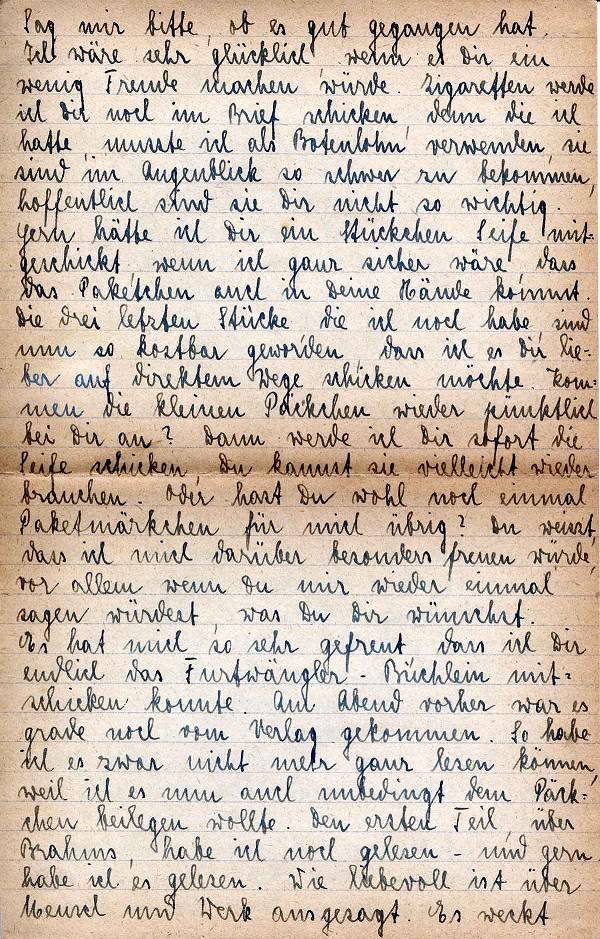 Sag mir bitte, ob es gut gegangen hat.
Ich wäre sehr glücklich, wenn es Dir ein
wenig Freude machen würde. Zigaretten werde
ich Dir noch im Brief schicken, denn die ich
hatte, musste ich als Botenlohn verwenden, sie
sind im Augenblick so schwer zu bekommen,
hoffentlich sind sie Dir nicht so wichtig.
Gern hätte ich Dir ein Stückchen Seife mit-
geschickt, wenn ich ganz sicher wäre, dass
das Paketchen auch in Deine Hände kommt.
Die drei letzten Stücke die ich noch habe, sind
nun so kostbar geworden, dass ich es Dir lie-
ber auf direktem Wege schicken möchte. Kom-
men die kleinen Päckchen wieder pünktlich
bei Dir an? Dann werde ich Dir sofort die
Seife schicken, Du kannst sie vielleicht wieder
brauchen. Oder hast Du wohl noch einmal
Paketmärkchen für mich übrig? Du weisst,
dass ich mich darüber besonders freuen würde,
vor allem wenn Du mir wieder einmal
sagen würdest, was Du Dir wünschst.
Es hat mich so sehr gefreut, dass ich Dir
endlich das Furtwängler-Büchlein mit-
schicken konnte. Am Abend vorher war es
grade noch vom Verlag gekommen. So habe
ich es zwar nicht mehr ganz lesen können,
weil ich es nun auch unbedingt dem Päck-
chen beilegen wollte. Den ersten Teil, über
Brahms, habe ich noch gelesen - und gern
habe ich es gelesen. Wie liebevoll ist über
Mensch und Werk ausgesagt. Es weckt